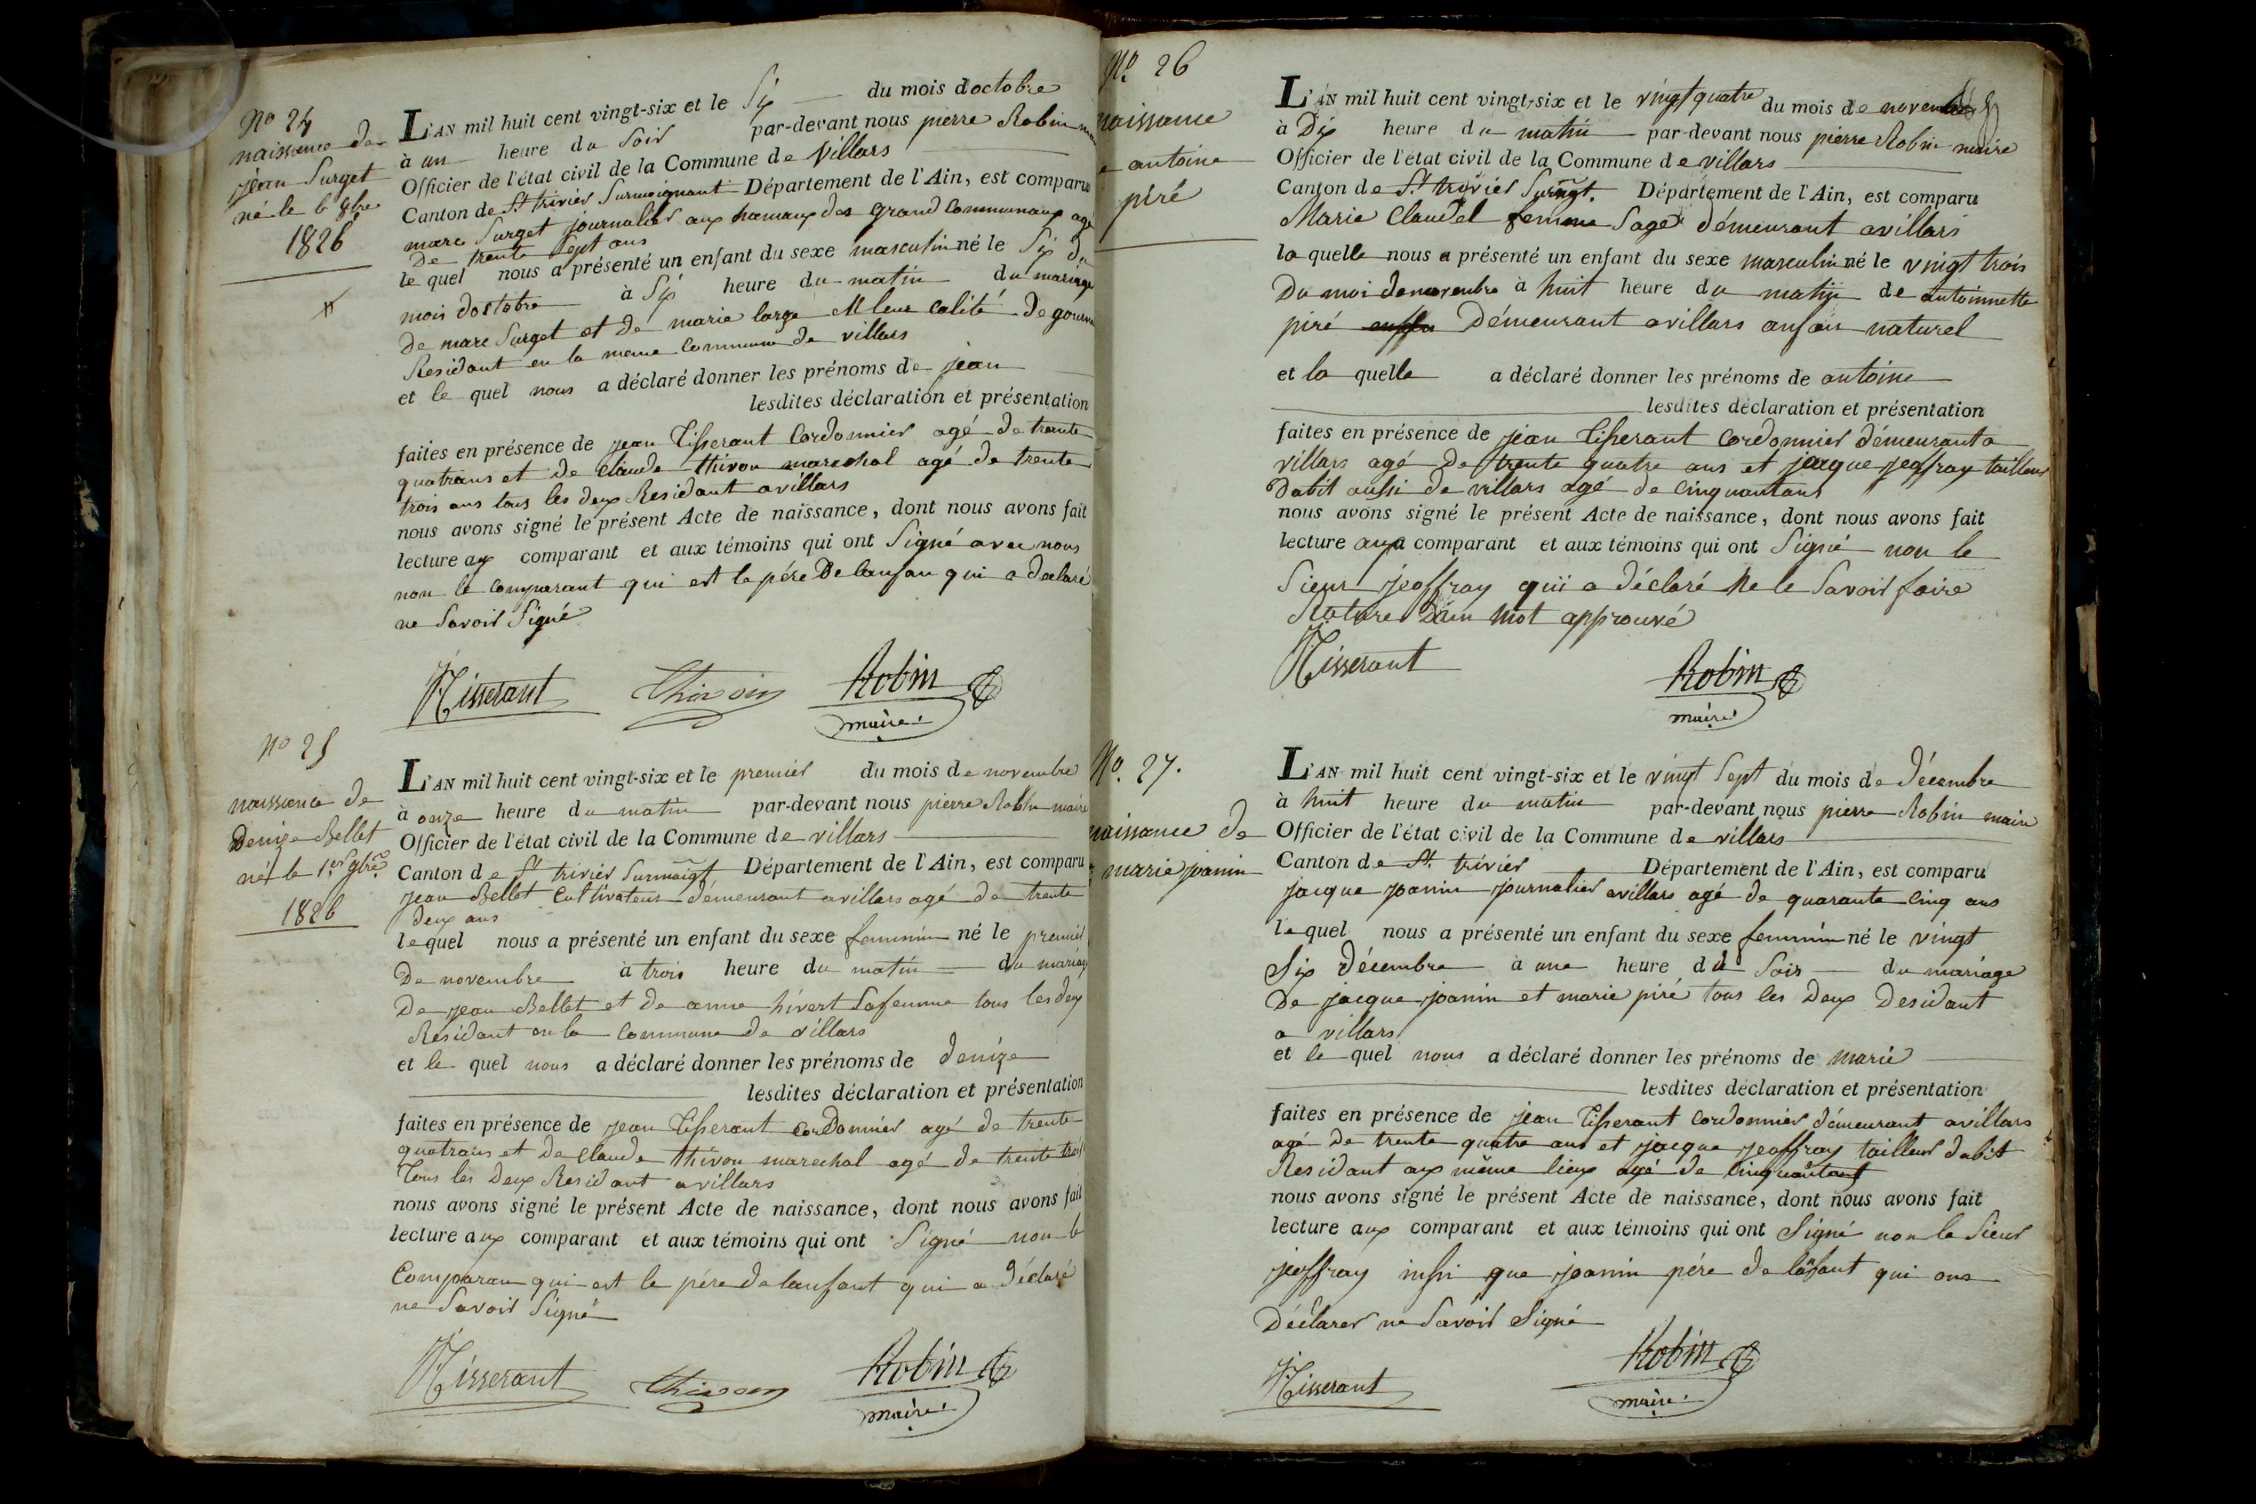 No 24
naissance de
jean Surget
né le 6 8bre
1826
L'AN mil huit cent vingt-six et le Six du mois doctobre
à un heure du Soir par-devant nous pierre Robin
Officier de l'état civil de la Commune de Villars
Canton de St trivier Surmoignant Département de l'Ain, est comparu
marc Surget journalier aux hamaux des grand Communaux agé
De trente Sept ans
le quel nous a présenté un enfant du sexe masculin né le Six du
mois doctobre à Six heure du matin du mariage
De marc Surget et de marie large
Residant en la meme Commune de villars
et le quel nous a déclaré donner les prénoms de jean
lesdites déclaration et présentation
faites en présence de jean tisserant Cordonnier agé de trente
quatrans et de Claude thivon marechal agé de trente
trois ans tous les deux Residant a villars
nous avons signé le présent Acte de naissance, dont nous avons fait
lecture aux comparant et aux témoins qui ont Signé avec nous
non le comparant qui est le pére De lanfan qui a declaré
ne Savoir Signé
Tisserant Thivon Robin
maire
No 25
naissance de
Denize Bellet
né le 1er 9bre
1826
L'AN mil huit cent vingt-six et le premier du mois de novembre
à onze heure du matin par-devant nous pierre Robin maire
Officier de l'état civil de la Commune de villars
Canton de St trivier Surmoigt Département de l'Ain, est comparu
jean Bellet Cultivateur démeurant a villars agé de trente
deux ans
le quel nous a présenté un enfant du sexe feminin né le premier
De novembre à trois heure du matin du mariage
De jean Bellet et de anne hivert Safemme tous les deux
Residant en la Commune de villars
et le quel nous a déclaré donner les prénoms de denize
lesdites déclaration et présentation
faites en présence de jean tisserant corDonnier agé de trente
quatrans et De Claude thivon marechal agé de trente trois
Tous les Deux Residant a villars
nous avons signé le présent Acte de naissance, dont nous avons fait
lecture aux comparant et aux témoins qui ont Signé non le
Comparan qui est le pére de lanfant qui a déclaré
ne Savoir Signé
Tisserant Thivon Robin
maire
No. 26
naissance
antoine
piré
L'AN mil huit cent vingt-six et le vingt quatre du mois de novembre
à Dix heure du matin par-devant nous pierre Robin maire
Officier de l'état civil de la Commune de villars
Canton de St trivier Surmgt. Département de l'Ain, est comparu
Marie Claudel femme Sage démeurant a villars
la quelle nous a présenté un enfant du sexe masculin né le vingt trois
Du moi de novembre à huit heure du matin de antoinnette
piré Démeurant a villars anfan naturel
et la quelle a déclaré donner les prénoms de antoine
lesdites déclaration et présentation
faites en présence de jean tisserant Cordonnier démeurant a
villars agé de trente quatre ans et jacque jeoffray tailleur
dabit aussi de villars agé de cinquantans
nous avons signé le présent Acte de naissance, dont nous avons fait
lecture aux comparant et aux témoins qui ont Signé non le
Sieur jeoffray qui a déclaré ne le Savoir faire
Rature Dun mot approuvé
Tisserant Robin
maire
No. 27.
naissance de
marie joanin
L'AN mil huit cent vingt-six et le vingt Sept du mois de décembre
à huit heure du matin par-devant nous pierre Robin maire
Officier de l'état civil de la Commune de villars
Canton de St. trivier Département de l'Ain, est comparu
jacque joanin journalier a villars agé de quarante Cinq ans
le quel nous a présenté un enfant du sexe feminin né le vingt
Six décembre à une heure du Soir du mariage
De jacque joanin et marie piré tous les Deux Desidant
a villars
et le quel nous a déclaré donner les prénoms de marie
lesdites déclaration et présentation
faites en présence de jean tisserant cordonnier démeurant a villars
agé de trente quatre ans et jacque jeoffray tailleur dabit
Residant aux même lieux agé de Cinquantans
nous avons signé le présent Acte de naissance, dont nous avons fait
lecture aux comparant et aux témoins qui ont Signé non le Sieur
jeoffray inssi que joanin pére de lanfant qui ons
Déclarer ne Savoir Signé
Tisserant Robin
maire